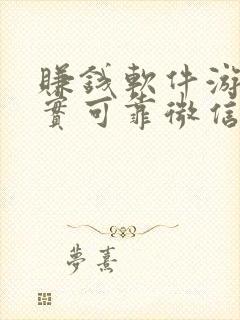 賺錢軟件游
實可靠微信
夢熹